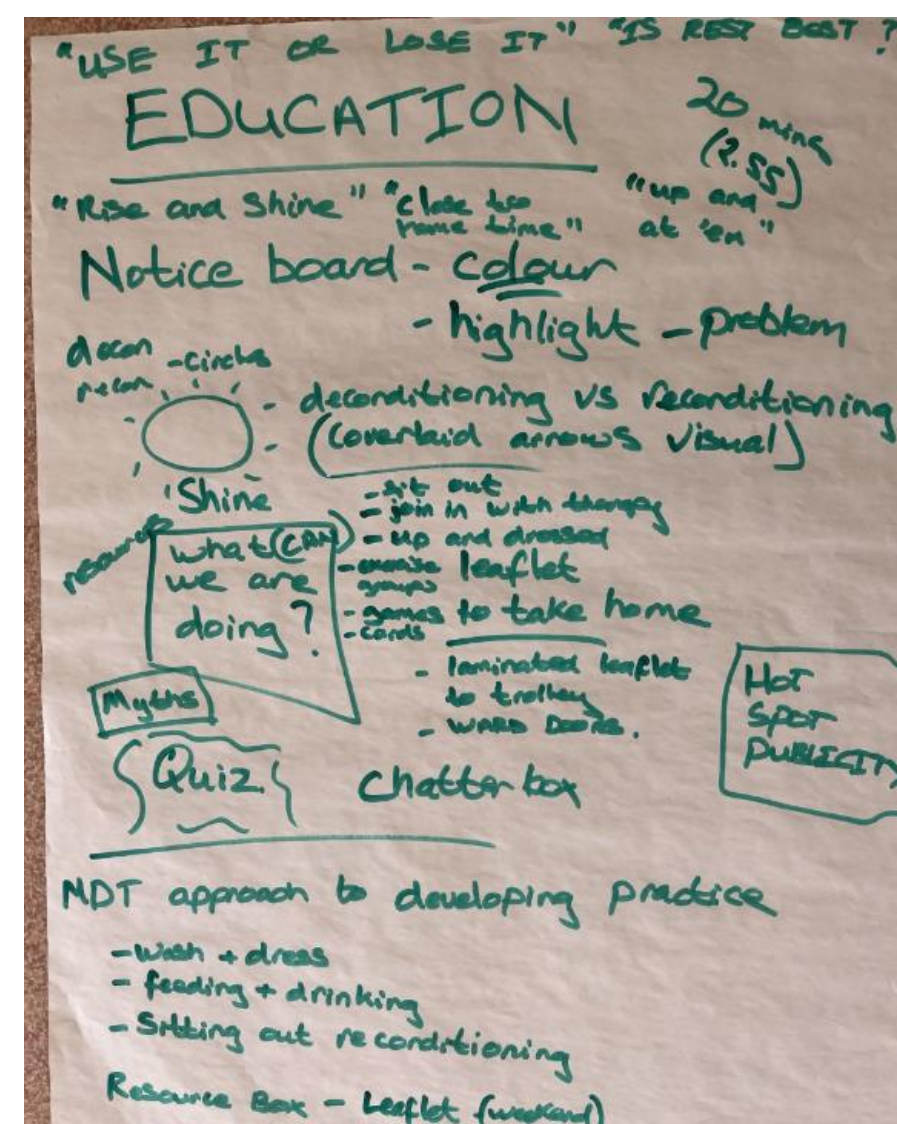 "USE IT OR LOSE IT" "IS REST BEST?
EDUCATION
20 mins
(2.55)
"Rise and Shine" "close too
home time"
"up and
at 'em"
Notice board - colour
- highlight - problem
decon - circles
recon
- deconditioning vs reconditioning
(overlaid arrows visual)
Shine
resources
what (CAN)
we are
doing?
- sit out
- join in with therapy
- up and dressed
- exercise
groups
- games
- cards
leaflet
to take home
- laminated leaflet
to trolley
- WARD DOORS.
Myths
HOT
SPOT
PUBLICITY
Quiz.
Chatter box
MDT approach to developing practice
- Wash + dress
- feeding + drinking
- Sitting out reconditioning
Resource Box - Leaflet (weekend)